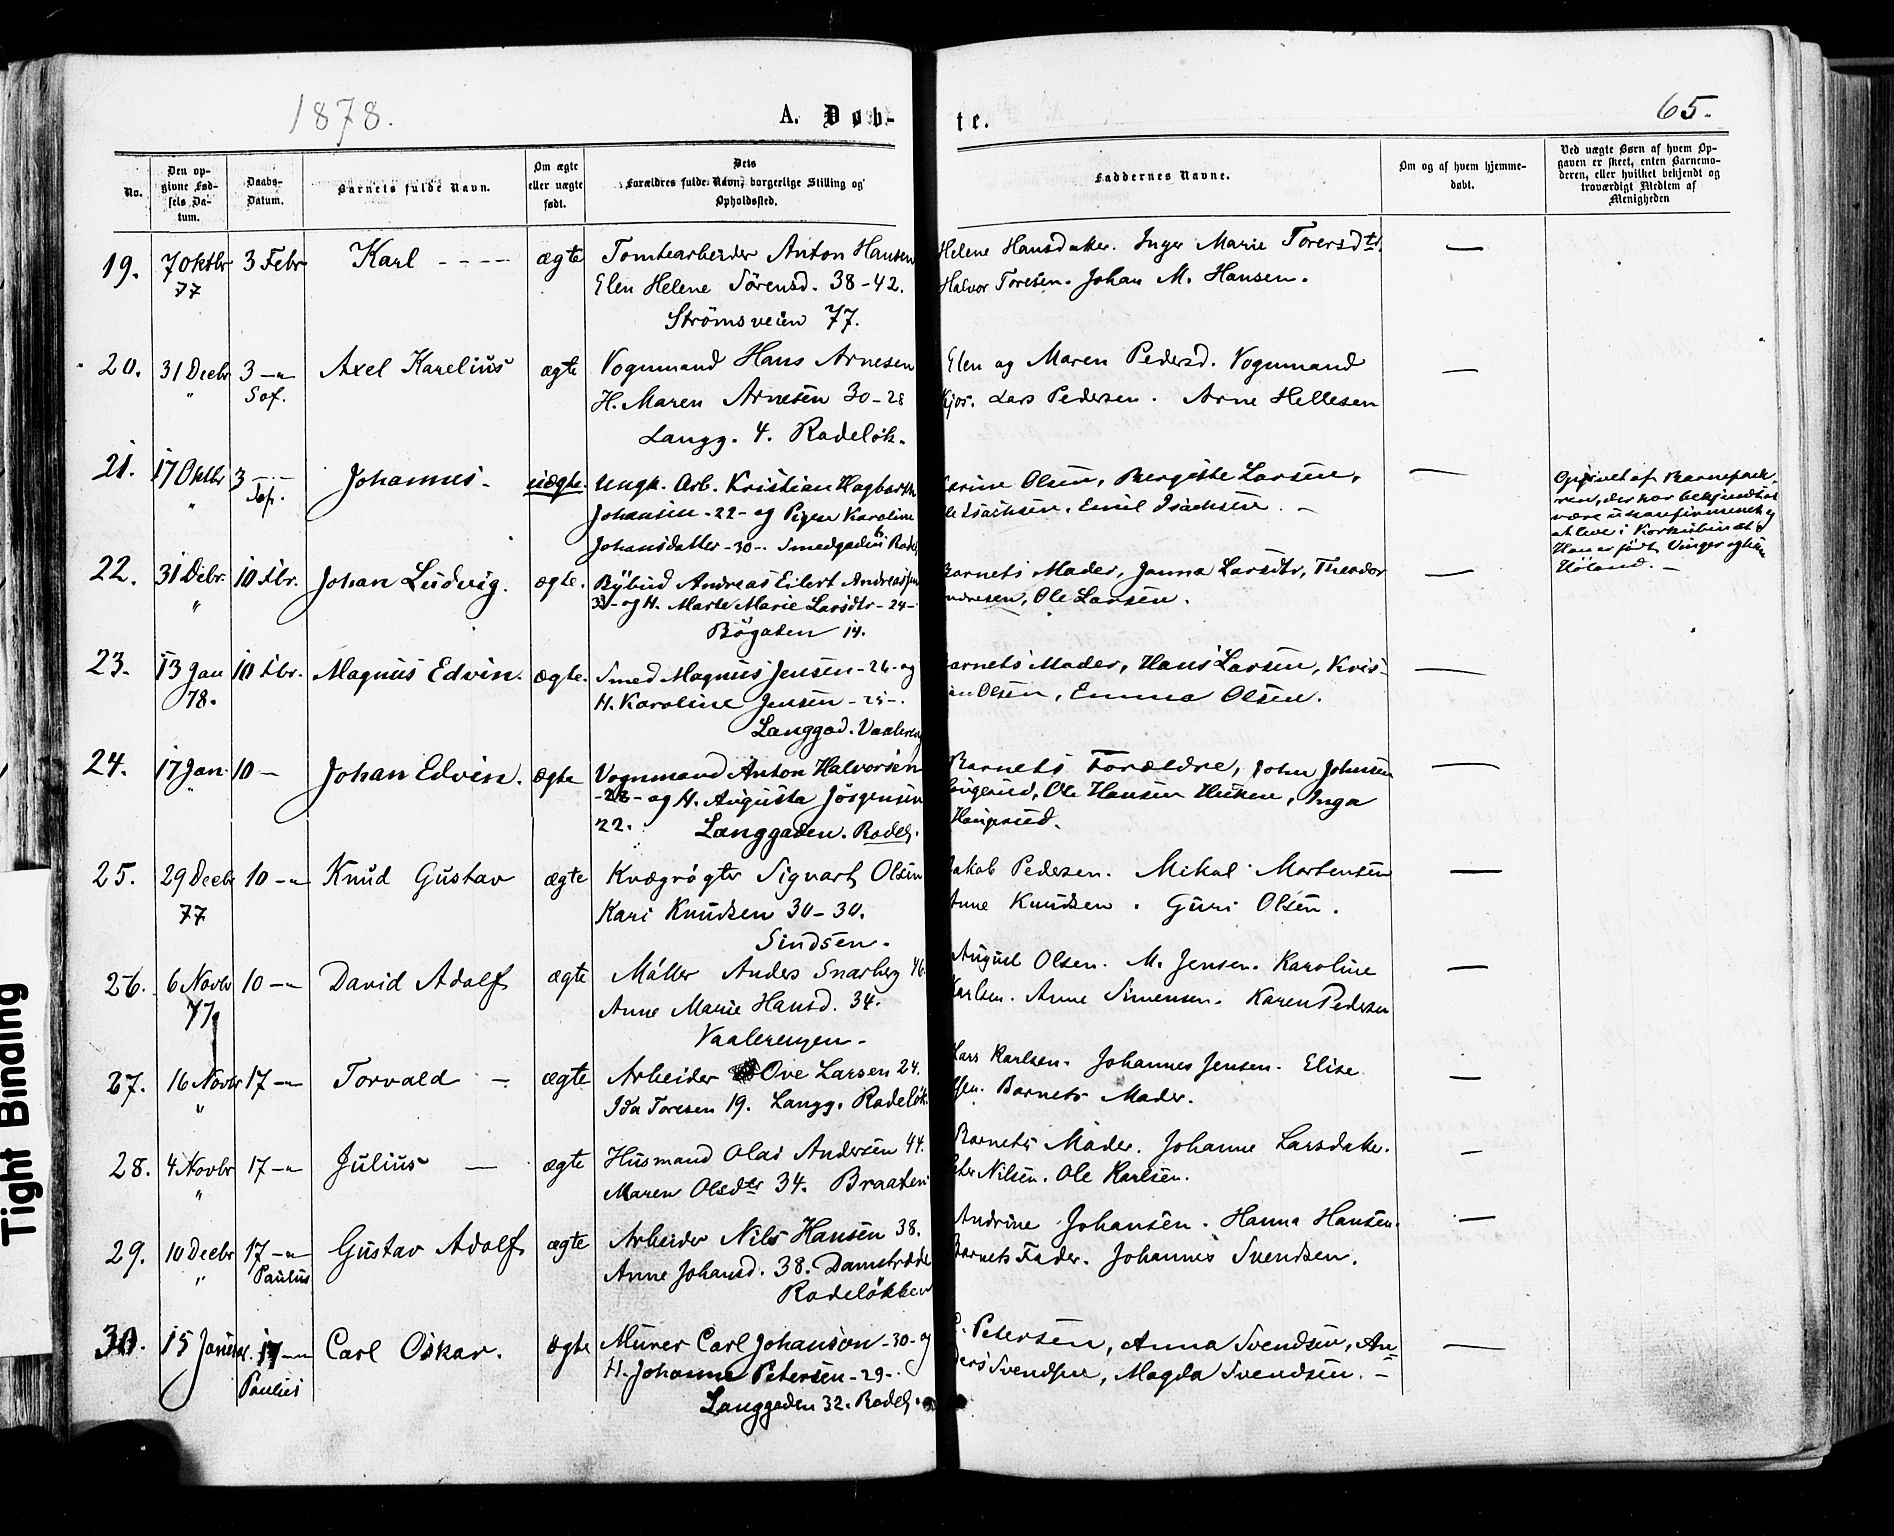 1878.
A. Døb-
te.
65.
No.
Den op-
givne Fød-
sels Da-
tum.
Daabs-
Datum.
Barnets fulde Navn.
Om ægte
eller uægte
født.
Dets
Forældres fulde Navn, borgerlige Stilling og
Opholdssted.
Faddernes Navne.
Om og af hvem hjemme-
døbt.
Ved uægte Børn af hvem Op-
gaven er skeet, enten Barnemo-
deren, eller hvilket bekjendt og
troværdigt Medlem af
Menigheden
19. 7 Oktbr 3 Febr Karl - - - - ægte Tomtearbeider Anton Hansen Helene Hansdater. Inger Marie Torersdtr. —
77 Elen Helene Sörensd. 38-42. Halvor Toresen. Johan M. Hansen.
Strömsveien 77.
20. 31 Decbr 3 -"- Axel Karelius ægte Vognmand Hans Arnesen Elen og Maren Pedersd. Vognmand —
" Sof. H. Maren Arnesen 30-28 Kjos. Lars Pedersen. Arne Hellesen
Langg. 4. Rodeløk.
21. 17 Oktbr 3 - Johannes - uægte. Ungk. Arb. Kristian Hagbarth Karine Olsen, Bergitte Larsen, —
" Sof. Johansen - 22 - og Pigen Karoline Isachsen, Emil Isachsen. -
Johansdatter - 30 -. Smedgaden Rodel.
Opgivet af
at leve i
Høland. -
22. 31 Debr. 10 Fbr. Johan Ludvig. ægte. Bybud Andreas Eilert Andreassen Barnets Moder, Janna Larsdtr, Theodor —
" 33 - og H. Marte Marie Larsdtr - 24 - Andresen, Ole Larsen.
Bögaten 14.
23. 13 Jan 10 Fbr. Magnus Edvin. ægte. Smed Magnus Jensen - 26 - og Barnets Moder, Hans Larsen, Kris- —
78. H. Karoline Jensen - 25 -. Olsen, Emma Olsen.
Langgad. Vaaleren
24. 17 Jan. 10 - Johan Edvin. ægte Vognmand Anton Halvorsen Barnets Forældre, John Johnsen —
" - 28 - og H. Augusta Jörgensen Haugerud, Ole Hansen, Inga
22. Langgaden. Rodel. Haugerud.
25. 29 Decbr 10 -"- Knud Gustav ægte Kvægrögter Sigvart Olsen Jakob Pedersen. Mikal Mortensen —
77 Kari Knudsen 30-30. Anne Knudsen. Guri Olsen.
Sindsen.
26. 6 Novbr 10 -"- David Adolf ægte Möller Anders Snarberg 46. August Olsen. M. Jensen. Karoline —
77 Anne Marie Hansd. 34. Karlsen. Anne Simensen. Karen Pedersen
Vaalerengen -
27. 16 Novbr 17 -"- Torvald - ægte Arbeider Ove Larsen 24. Lars Karlsen. Johannes Jensen. Elise —
" Ida Toresen 19. Langg. Rodeløk. Barnets Moder.
28. 4 Novbr 17 -"- Julius — ægte Husmand Olai Andersen 44. Barnets Moder. Johanne Larsdater. —
" Maren Olsdtr 34. Braaten Peter Nilsen. Ole Karlsen.
29. 10 Decbr 17 -"- Gustav Adolf ægte Arbeider Nils Hansen 38. Andrine Johansen. Hanna Hansen. —
" Paulus Anne Johansd. 38. Damstrædet Barnets Fader. Johannes Svendsen.
Rodeløkken
30. 15 17 -"- Carl Oskar. ægte Murer Carl Johanson - 30 - og Petersen, Anna Svendsen, An= —
Paulus H. Johanne Petersen - 29 -. ders Svendsen, Magda Svendsen. -
Langgaden 32. Rodel.
Tight Binding